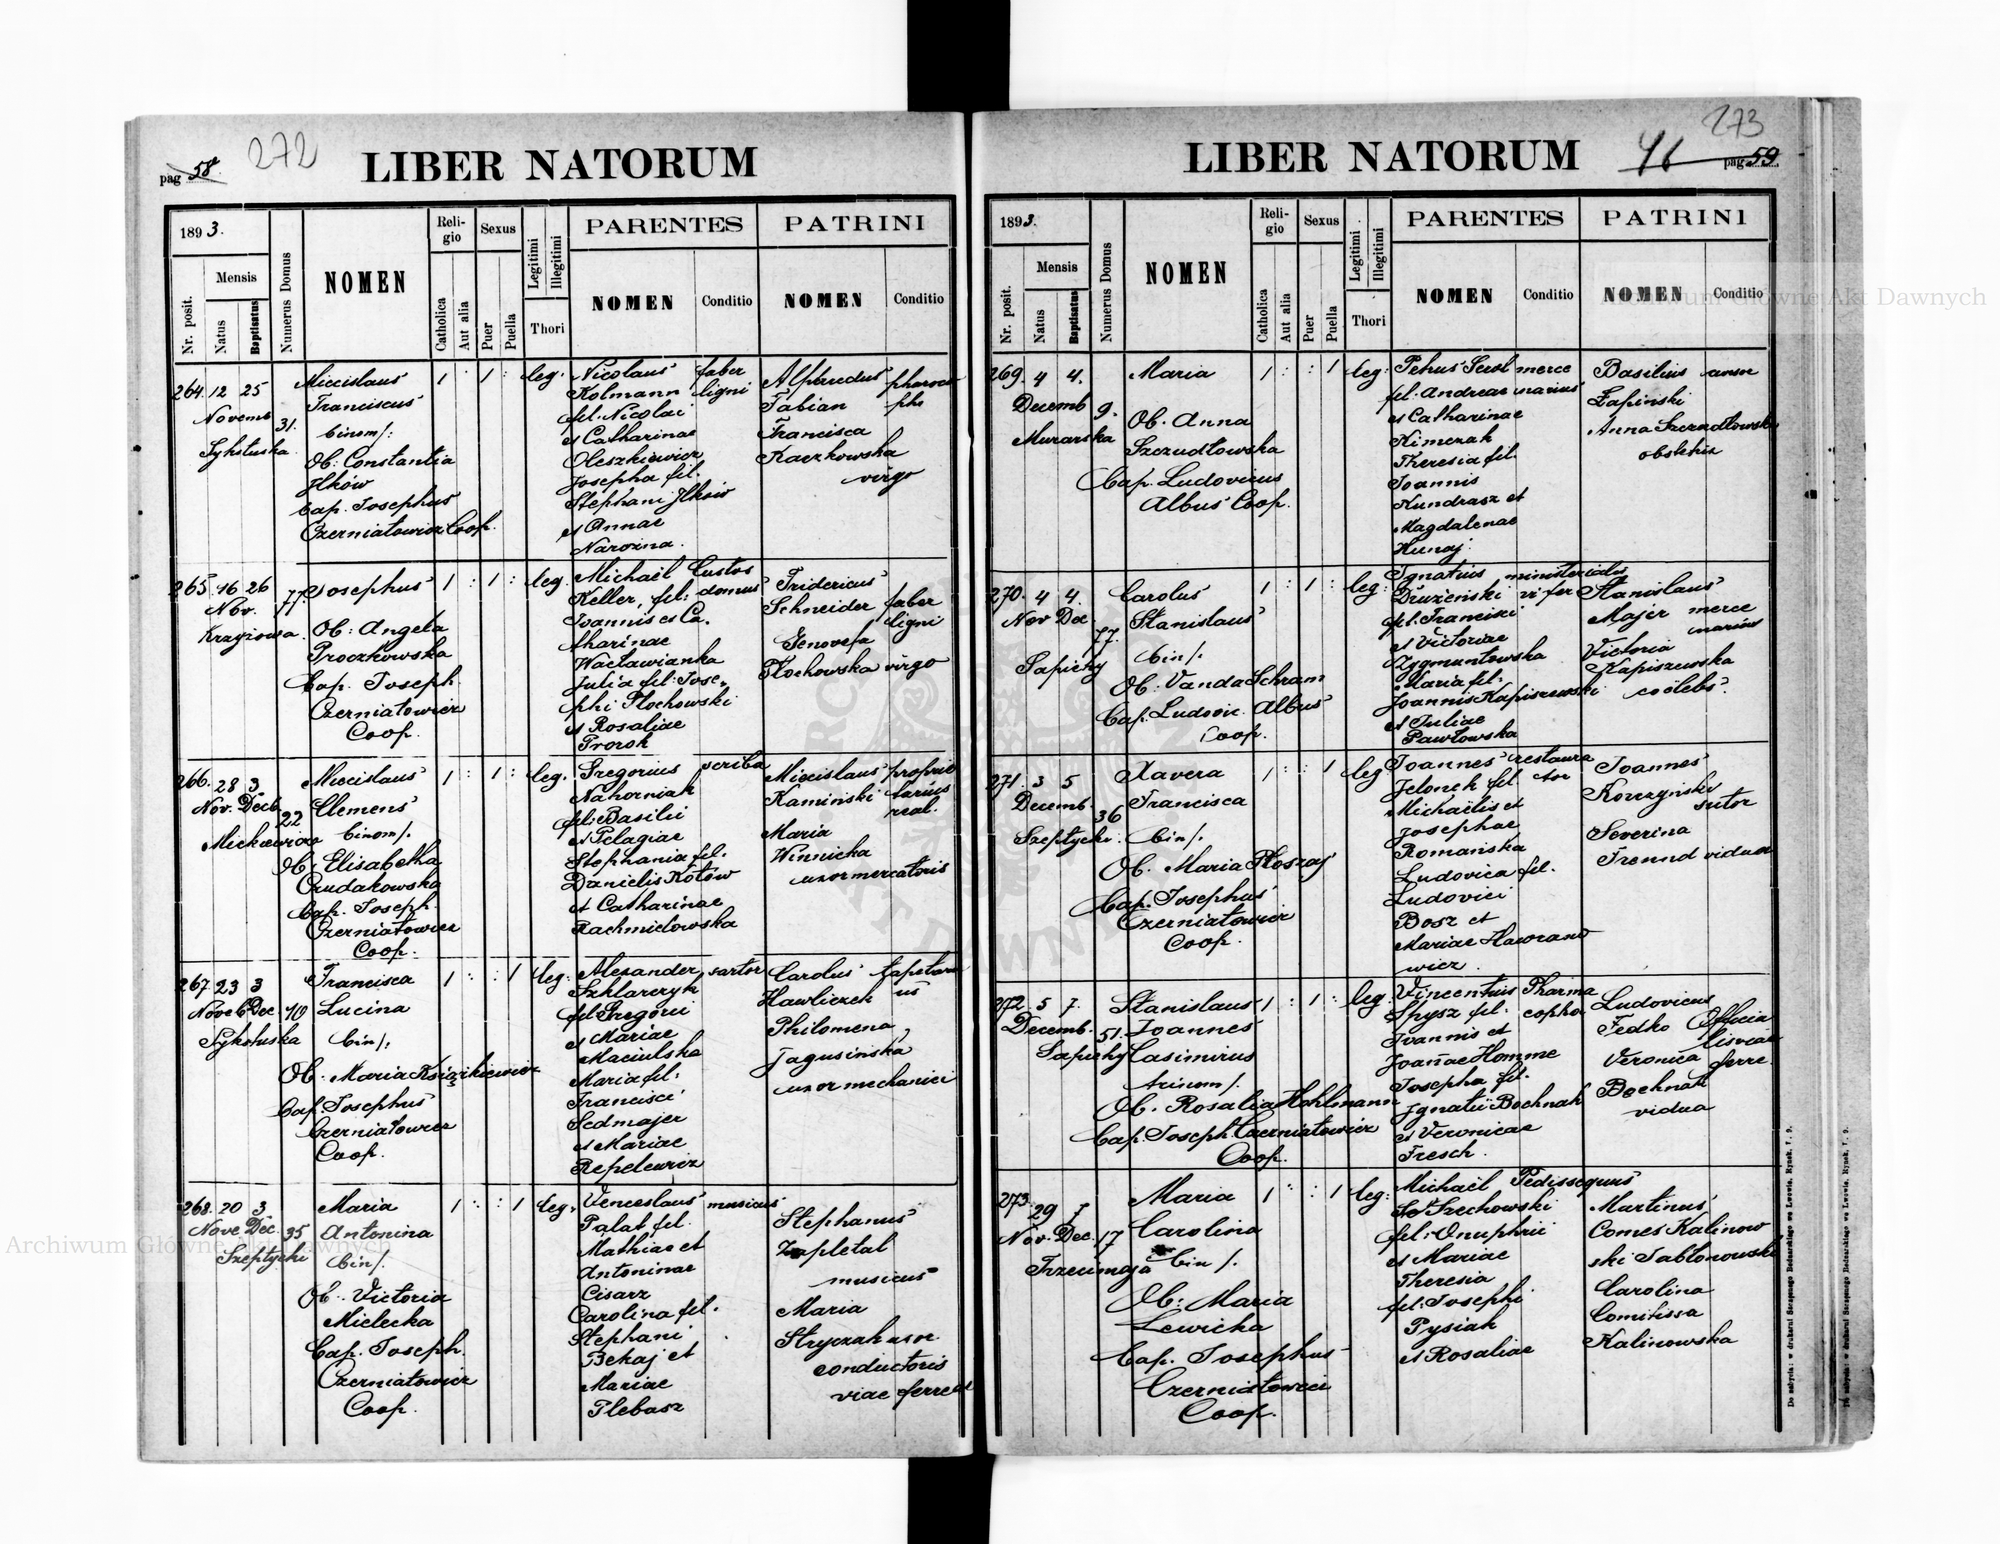 pag 58
272
LIBER NATORUM
1893.
Nr. posit.
Mensis
Natus
Baptisatus
Numerus Domus
NOMEN
Religio
Catholica
Aut alia
Sexus
Puer
Puella
Legitimi
Illegitimi
Thori
PARENTES
NOMEN
Conditio
PATRINI
NOMEN
Conditio
264. 12 25
Novemb
31.
Sykstuska
Miecislaus
Franciscus
binom/:
Ob: Constantia
Ilków
Cap. Josephus
Czerniatowicz Coop.
1 : 1 : leg.
Nicolaus faber
Kolmann ligni
fil. Nicolai
et Catharinae
Oleszkiewicz
Josepha fil.
Stephani Ilków
et Annae
Narożna.
Alphredus
Fabian
Francisca
Kaczkowska
virgo
265. 16 26
Nov. 77.
Josephus
Ob: Angela
Proczkowska
Cap. Joseph.
Czerniatowicz
Coop.
1 : 1 : leg.
Michaël Custos
Keller, fil: domus
Joannis et Ca.
tharinae
Wacławianka
Julia fil: Jose-
phi Płochowski
et Rosaliae
Prorok
Fridericus
Schneider faber
ligni
Genovefa
Płochowska virgo
266. 28 3
Nov. Decb.
22
Mickiewicza
Miecislaus
Clemens
binom/.
Ob. Elisabetha
Czudakowska
Cap. Joseph.
Czerniatowicz
Coop.
1 : 1 : leg.
Gregorius scriba
Nahorniak
fil: Basilii
et Pelagiae
Stephania fil.
Danielis Kotów
et Catharinae
Rachmielowska
Miecislaus proprie
Kamiński tarius
real.
Maria
Winnicka
uxor mercatoris
267. 23 3
Noveb Dec. 40
Sykstuska
Francisca
Lucina
bin/.
Ob: Maria Książkiewicz
Cap. Josephus
Czerniatowicz
Coop.
1 : : 1 leg:
Alexander sartor
Szklarczyk
fil Gregorii
et Mariae
Maciulska
Maria fil:
Francisci
Sedmajer
et Mariae
Repelewicz
Carolus
Hawliczek
Philomena
Jagusińska
uxor mechanici
268. 20 3
Nove. Dec. 35
Szeptycki
Maria
Antonina
bin/.
Ob. Victoria
Mielecka
Cap. Joseph.
Czerniatowicz
Coop.
1 : : 1 leg.
Venceslaus musicus
Palat fil.
Mathiae et
Antoninae
Cisarz
Carolina fil.
Stephani
Bekaj et
Mariae
Plebasz
Stephanus
Zapletal
musicus
Maria
Stryczak uxor
conductoris
viae ferreae
LIBER NATORUM
273
46
pag 59
1893.
Nr. posit.
Mensis
Natus
Baptisatus
Numerus Domus
NOMEN
Religio
Catholica
Aut alia
Sexus
Puer
Puella
Legitimi
Illegitimi
Thori
PARENTES
NOMEN
Conditio
PATRINI
NOMEN
Conditio
269. 4 4.
Decemb 9.
Murarska
Maria
Ob. Anna
Szczudłowska
Cap. Ludovicus
Albus Coop.
1 : : 1 leg:
merce
fil. Andreae narius
et Catharinae
Kimczak
Theresia fil.
Joannis
Kundrasz et
Magdalenae
Hunaj.
Basilius
Łapinski
Anna Szczudłowska
obstetrix
270. 4 4.
Nov Dec.
77.
Sapiehy
Carolus
Stanislaus
bin/.
Ob: Vanda Schram
Cap. Ludovic. Albus
Coop.
1 : 1 : leg:
Ignatius ministerialis
Drużeński
fil. Francisci
et Victoriae
Zygmuntowska
Maria fil.
Joannis Kapiszewski
et Juliae
Pawłowska
Stanislaus
Majer merce
narius
Victoria
Kapiszewska
coelebs.
271. 3 5
Decemb.
36
Szeptycki
Xavera
Francisca
bin/.
Ob. Maria Płoszaj
Cap. Josephus
Czerniatowicz
Coop.
1 : : 1 leg
Joannes restaura
Jelonek fil. tor
Michaëlis et
Josephae
Romańska
Ludovica fil.
Ludovici
Bosz et
Mariae Hawrano
wicz.
Joannes
Korczyński
sutor
Severina
Freund vidua
272. 5 7.
Decemb.
51.
Sapiehy
Stanislaus
Joannes
Casimirus
trinom/.
Ob. Rosalia Hohlmann
Cap. Joseph. Czerniatowicz
Coop.
1 : 1 : leg.
Vincentius Pharma
Spysz fil. copola
Joannis et
Joannae Homme
Josepha fil.
Ignatii Bochnak
et Veronicae
Fresch.
Ludovicus
Fedko Officia
lis viae
Veronica ferre.
Bochnak
vidua
273. 29 7
Nov. Dec. 17
Trzecimaja
Maria
Carolina
bin/.
Ob: Maria
Lewicka
Cap. Josephus
Czerniatowicz
Coop.
1 : : 1 leg:
Michaël Pedissequus
fil: Onuphrii
et Mariae
Theresia
fil: Josephi
Pysiak
et Rosaliae
Martinus
Comes Kalinow
ski Jabłonowski
Carolina
Comitissa
Kalinowska
Archiwum Główne Akt Dawnych
Archiwum Główne Akt Dawnych